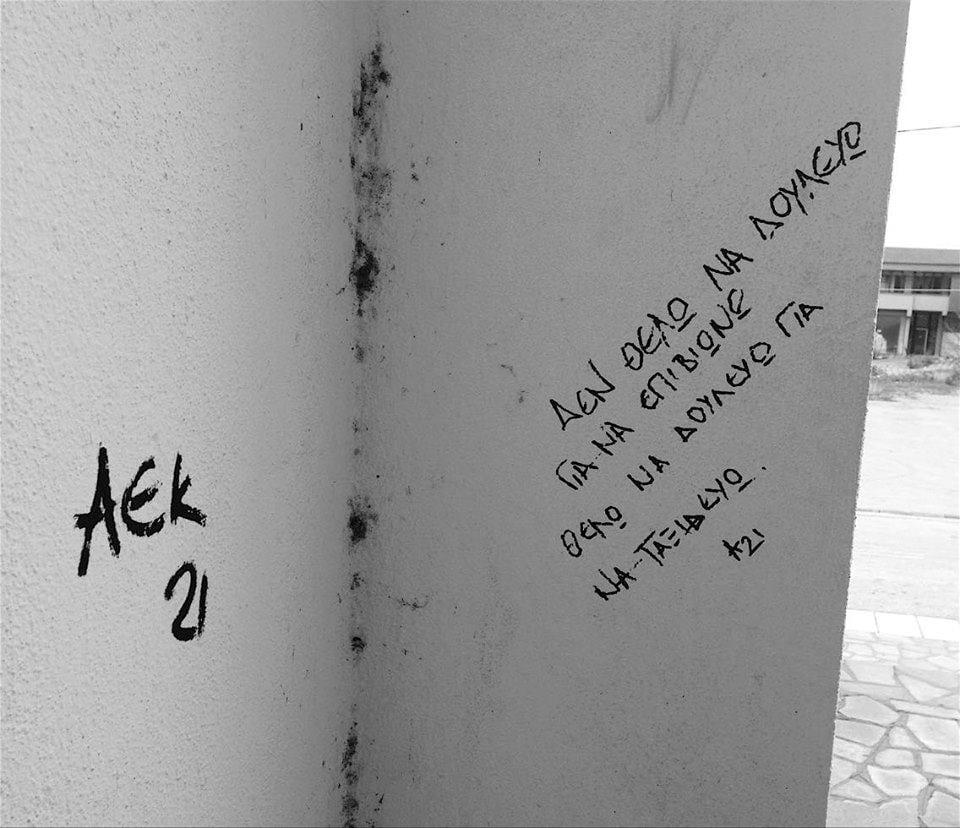 ΑΕΚ
21
ΔΕΝ ΘΕΛΩ ΝΑ ΔΟΥΛΕΥΩ
ΓΙΑ ΝΑ ΕΠΙΒΙΩΝΩ
ΘΕΛΩ ΝΑ ΔΟΥΛΕΥΩ ΓΙΑ
ΝΑ ΤΑΞΙΔΕΥΩ.
A21